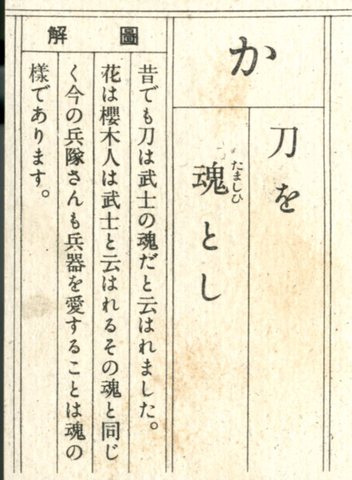 か
刀を
魂とし
たましひ
圖解
昔でも刀は武士の魂だと云はれました。
花は櫻木人は武士と云はれるその魂と同じ
く今の兵隊さんも兵器を愛することは魂の
樣であります。